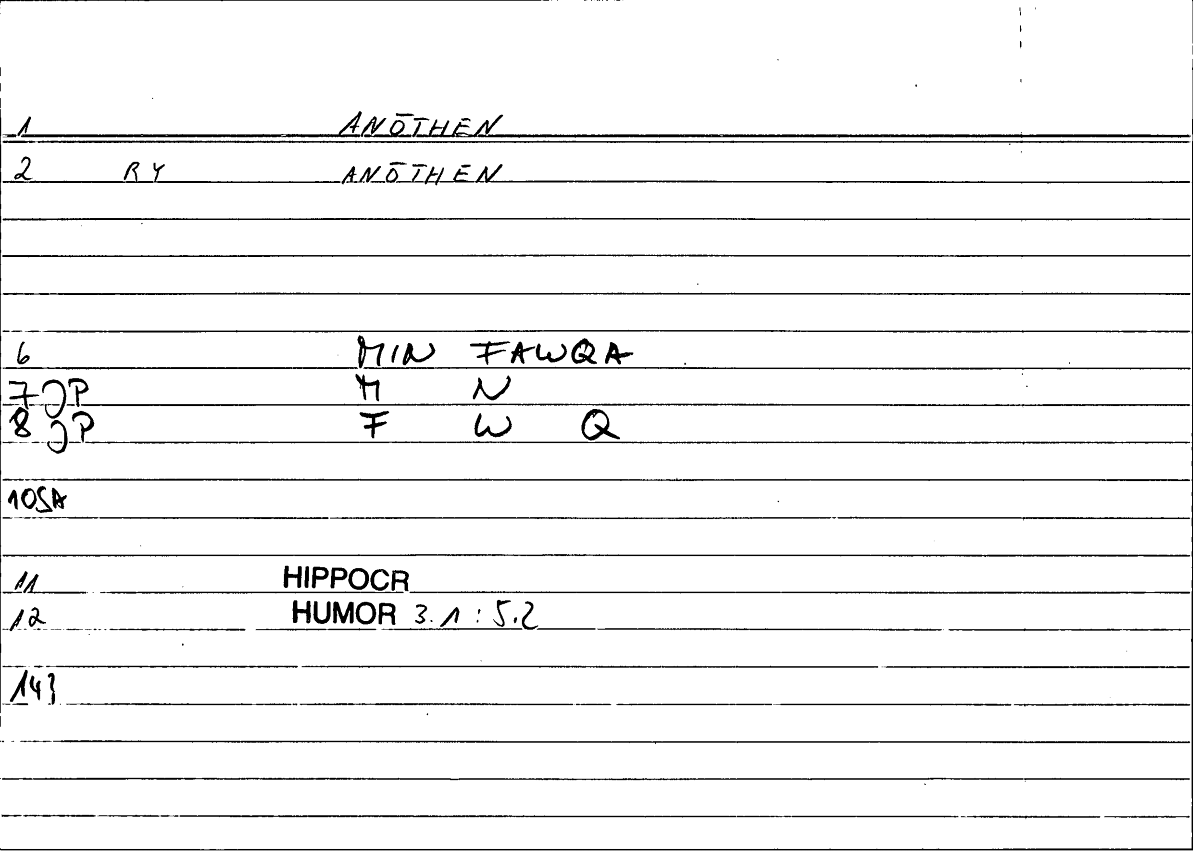 1 ANŌTHEN
2 RY ANŌTHEN
6 MIN FAWQA
7 JP M N
8 JP F W Q
10 SA
11 HIPPOCR
12 HUMOR 3.1 : 5.2
14 }